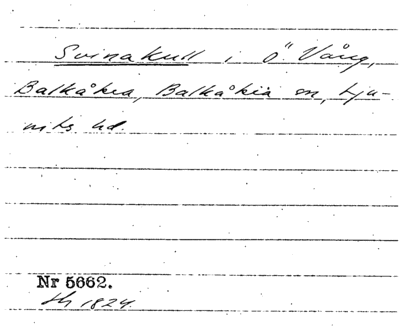 Svinakull i Ö. Vång,
Balkåkra, Balkåkra sn, Lju-
nits hd.
Nr 5662.
1824.